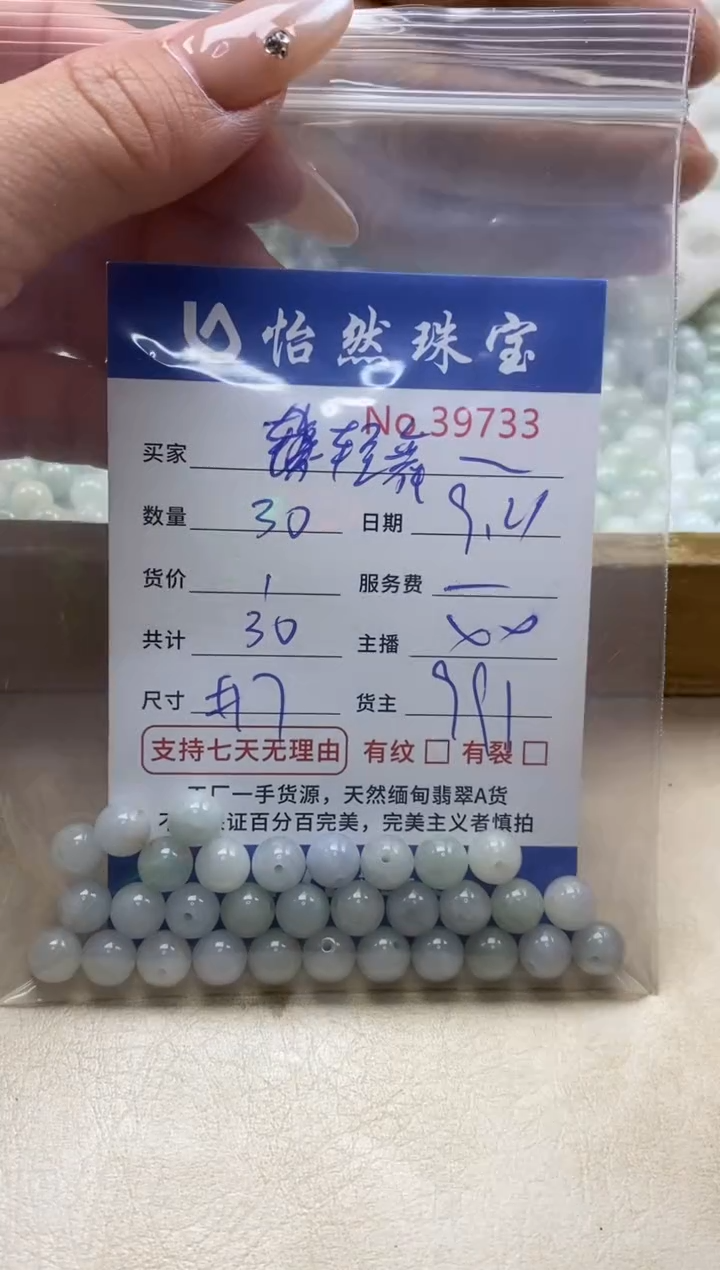 怡然珠宝
No.39733
买家
数量 30 日期 9.21
货价 1 服务费 一
共计 30 主播
尺寸 #7 货主 991
支持七天无理由 有纹 □ 有裂 □
一手货源，天然缅甸翡翠A货
证百分百完美，完美主义者慎拍